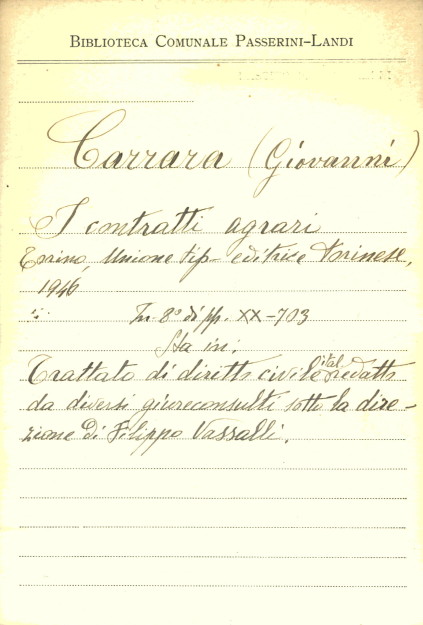 BIBLIOTECA COMUNALE PASSERINI-LANDI
Carrara (Giovanni)
I contratti agrari
Torino, Unione tip- editrice torinese,
1946
In 8° di pp. XX-703
Sta in:
Trattato di diritto civile ital redatto
da diversi giureconsulti sotto la dire-
zione di Filippo Vassalli.